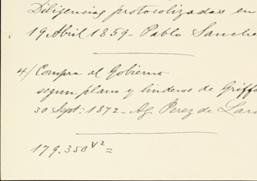 Diligencias protocolizadas en
19 Abril 1859 - Pablo Sanche
4/ Compra al Gobierno
segun plano y linderos de Griffo
30 Sept: 1872 - Ag. Perez de Lara
179.350 V² =